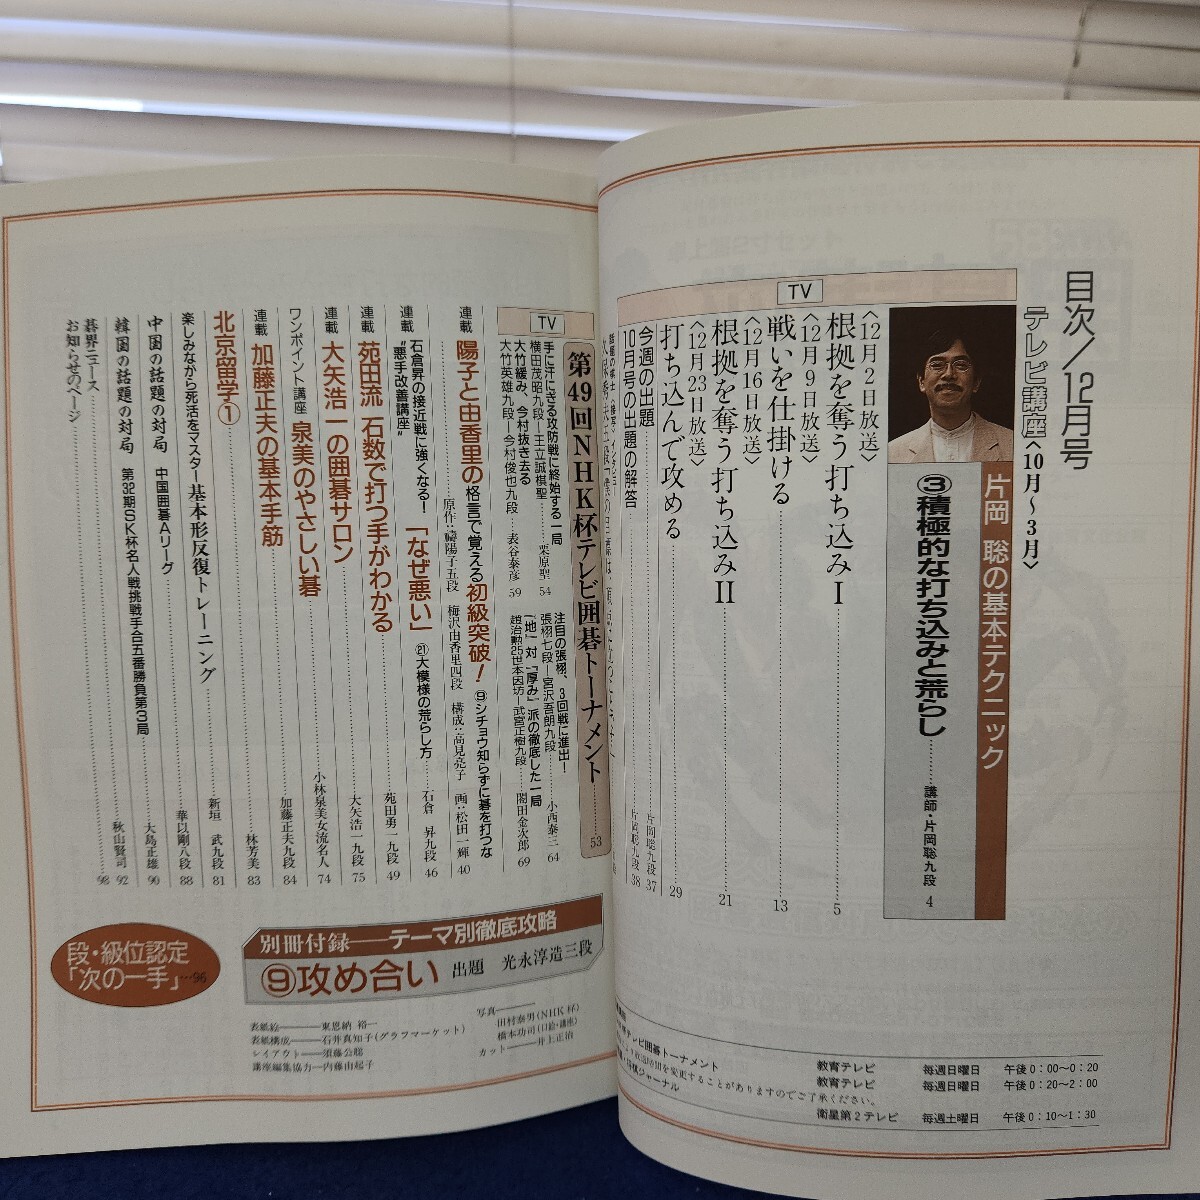 目次/12月号
テレビ講座〈10月〜3月〉
片岡 聡の基本テクニック
③積極的な打ち込みと荒らし……講師・片岡聡九段 4
TV
〈12月2日放送〉
根拠を奪う打ち込みI……5
〈12月9日放送〉
戦いを仕掛ける……13
〈12月16日放送〉
根拠を奪う打ち込みII……21
〈12月23日放送〉
打ち込んで攻める……29
今週の出題……片岡聡九段 37
10月号の出題の解答……片岡聡九段 38
テレビ囲碁トーナメント
教育テレビ 毎週日曜日 午後0:00〜0:20
教育テレビ 毎週日曜日 午後0:20〜2:00
を変更することがありますのでご了承ください。
ジャーナル
衛星第2テレビ 毎週土曜日 午後0:10〜1:30
第49回NHK杯テレビ囲碁トーナメント……53
TV
手に汗にぎる攻防戦に終始する一局
横田茂昭九段―王立誠棋聖……栗原聖 54
大竹緩み、今村抜き去る
大竹英雄九段―今村俊也九段……表谷泰彦 59
注目の張栩、3回戦に進出!
張栩七段―宮沢吾朗九段……小西泰三 64
「地」対「厚み」派の徹底した一局
趙治勲25世本因坊―武宮正樹九段……閣田金次郎 69
連載 陽子と由香里の格言で覚える初級突破! ⑨シチョウ知らずに碁を打つな
原作:禱陽子五段 梅沢由香里四段 構成:高見亮子 画:松田一輝 40
石倉昇の接近戦に強くなる!
連載 “悪手改善講座” 「なぜ悪い」 ㉑大模様の荒らし方……石倉 昇九段 46
連載 苑田流 石数で打つ手がわかる……苑田勇一九段 49
連載 大矢浩一の囲碁サロン……大矢浩一九段 75
ワンポイント講座 泉美のやさしい碁……小林泉美女流名人 74
連載 加藤正夫の基本手筋……加藤正夫九段 84
北京留学①……林芳美 83
楽しみながら死活をマスター基本形反復トレーニング……新垣 武九段 81
中国の話題の対局 中国囲碁Aリーグ……華以剛八段 88
韓国の話題の対局 第32期SK杯名人戦挑戦手合五番勝負第3局……大島正雄 90
碁界ニュース……秋山賢司 92
お知らせのページ……98
段・級位認定
「次の一手」…96
別冊付録――テーマ別徹底攻略
⑨攻め合い 出題 光永淳造三段
表紙絵――東恩納 裕一
表紙構成――石井真知子(グラフマーケット)
レイアウト――須藤公聡
講座編集協力――内藤由起子
写真――
田村泰男(NHK杯)
橋本功司(口絵・講座)
カット――井上正治